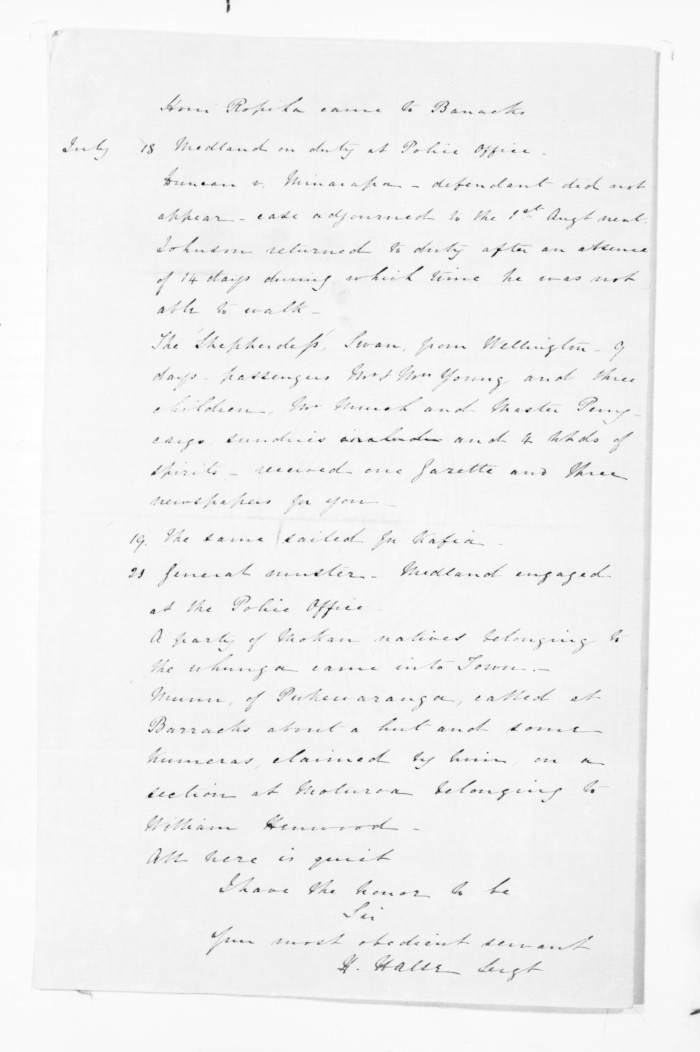 Honi Ropiha came to Barracks
July 18 Medland on duty at Police Office.
Duncan v. Minarapa - defendant did not
appear - case adjourned to the 1st Augt next.
Johnson returned to duty after an absence
of 14 days during which time he was not
able to walk -
The 'Shepherdess', Swan, from Wellington - 9
days - passengers Mr & Mrs Young and three
children, Mr and Master Perry -
cargo sundries and 4 hhds of
spirits - received one Gazette and three
newspapers for you -
19. The same sailed for Kafia.
21 General muster - Medland engaged
at the Police Office
A party of Mokau natives belonging to
the whunga came into Town -
Munu, of Pukewaranga, called at
Barracks about a hut and some
kumeras, claimed by him, on a
section at Moturoa belonging to
William Henwood -
All here is quiet
I have the honor to be
Sir
Your most obedient servant
H. Halse Sergt